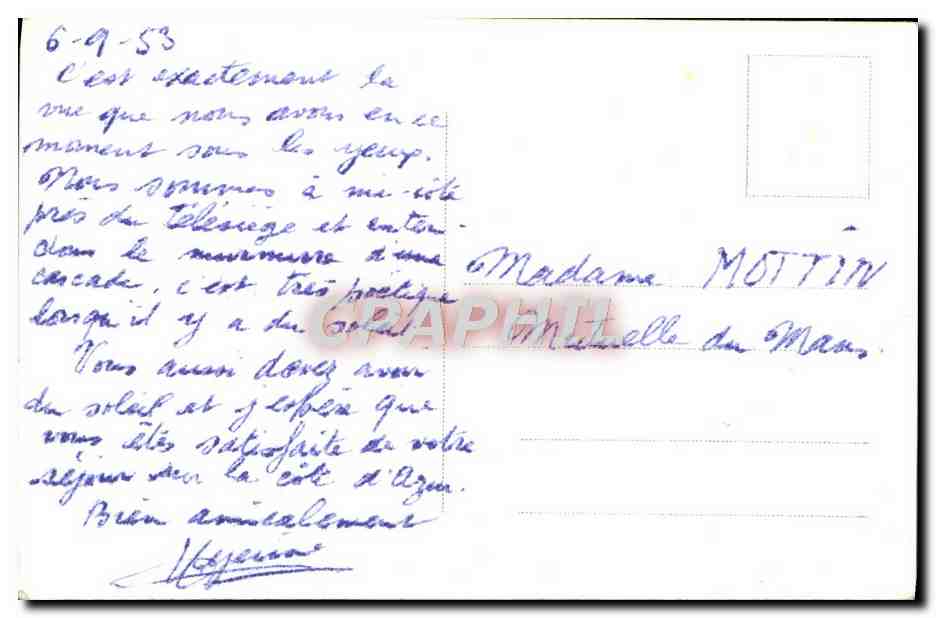 6-9-53
C'est exactement la
vue que nous avons en ce
moment sous les yeux.
Nous sommes à mi-côte
près du télésiège et enten-
dons le murmure d'une
cascade, c'est très poétique
lorsqu'il y a du soleil.
Vous aussi devez avoir
du soleil et j'espère que
vous êtes satisfaite de votre
séjour sur la côte d'Azur.
Bien amicalement
Madame MOTTIN
Mutuelle du Mans.
CPAPHIL